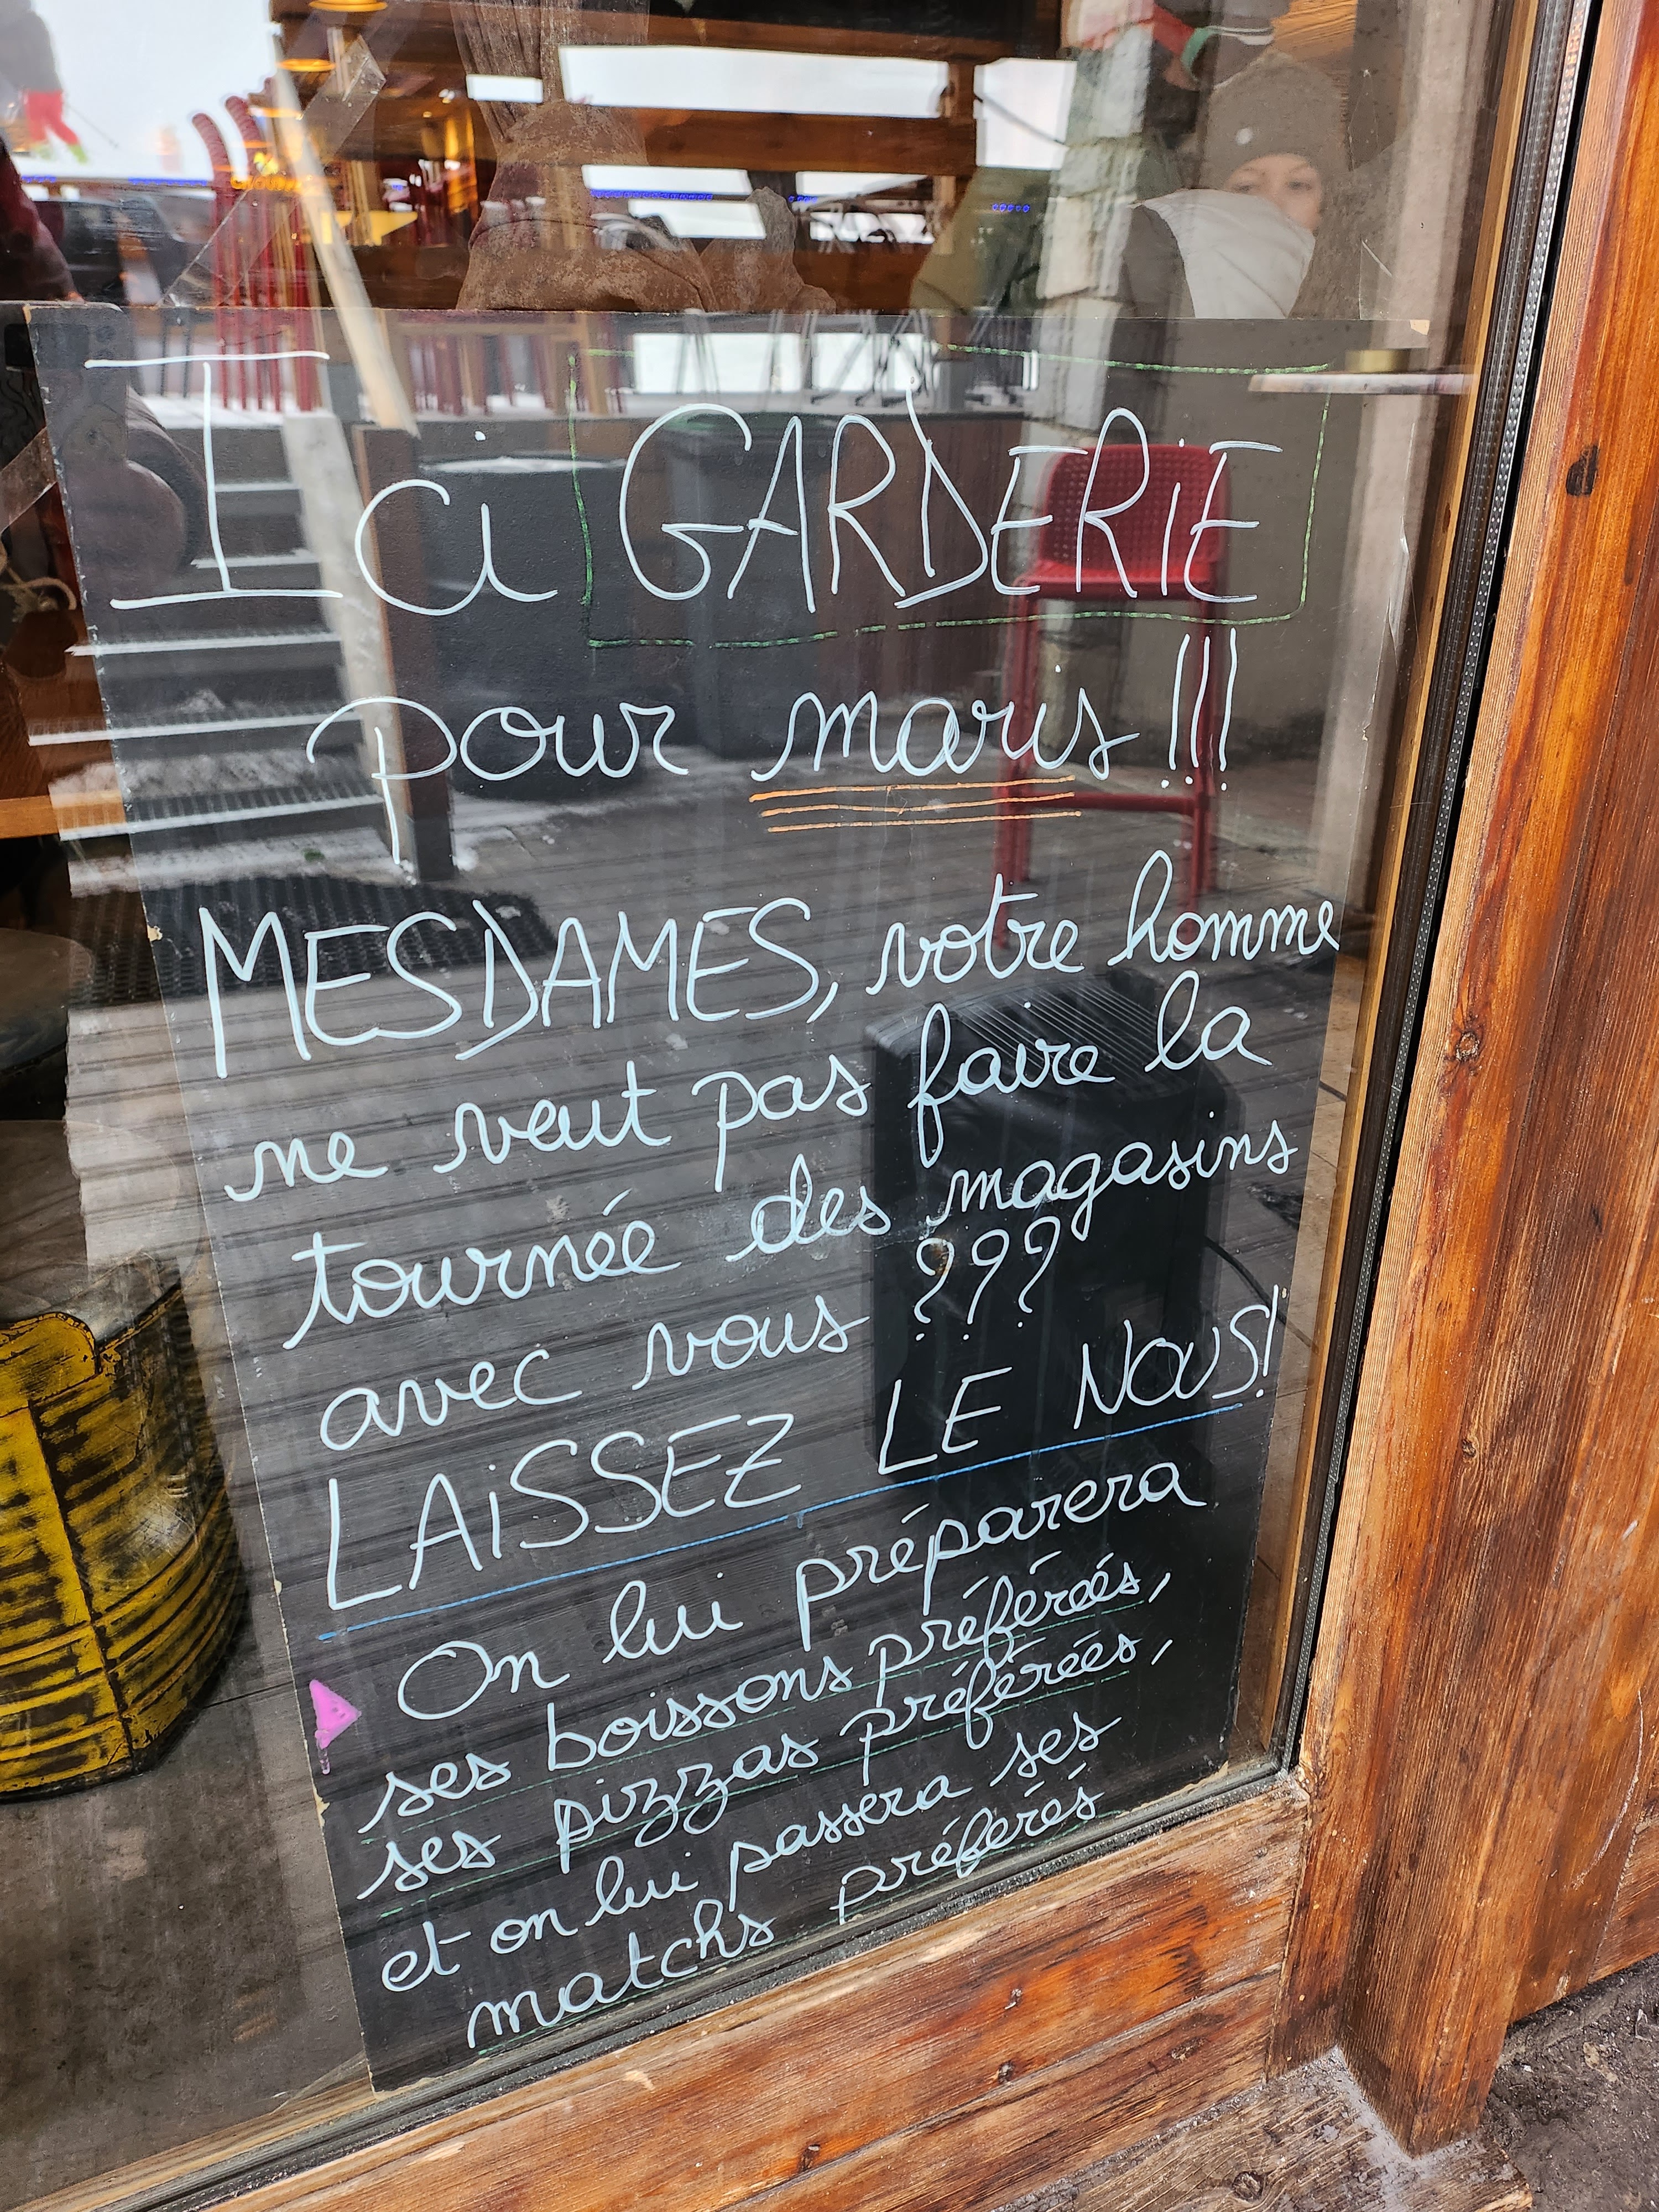 Ici GARDERIE
pour maris !!!
MESDAMES, votre homme
ne veut pas faire la
tournée des magasins
avec vous ???
LAiSSEZ LE NOUS!
On lui préparera
ses boissons préférées,
ses pizzas préférées,
et on lui passera ses
matchs préférés